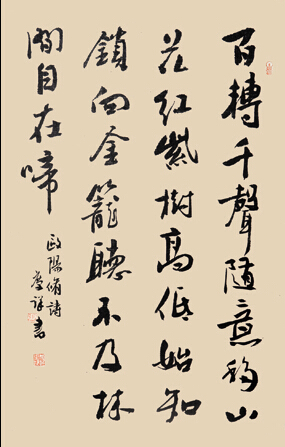 百轉千聲隨意移山
花紅紫樹高低始知
鎖向金籠聽不及林
間自在啼
歐陽脩詩
祥書